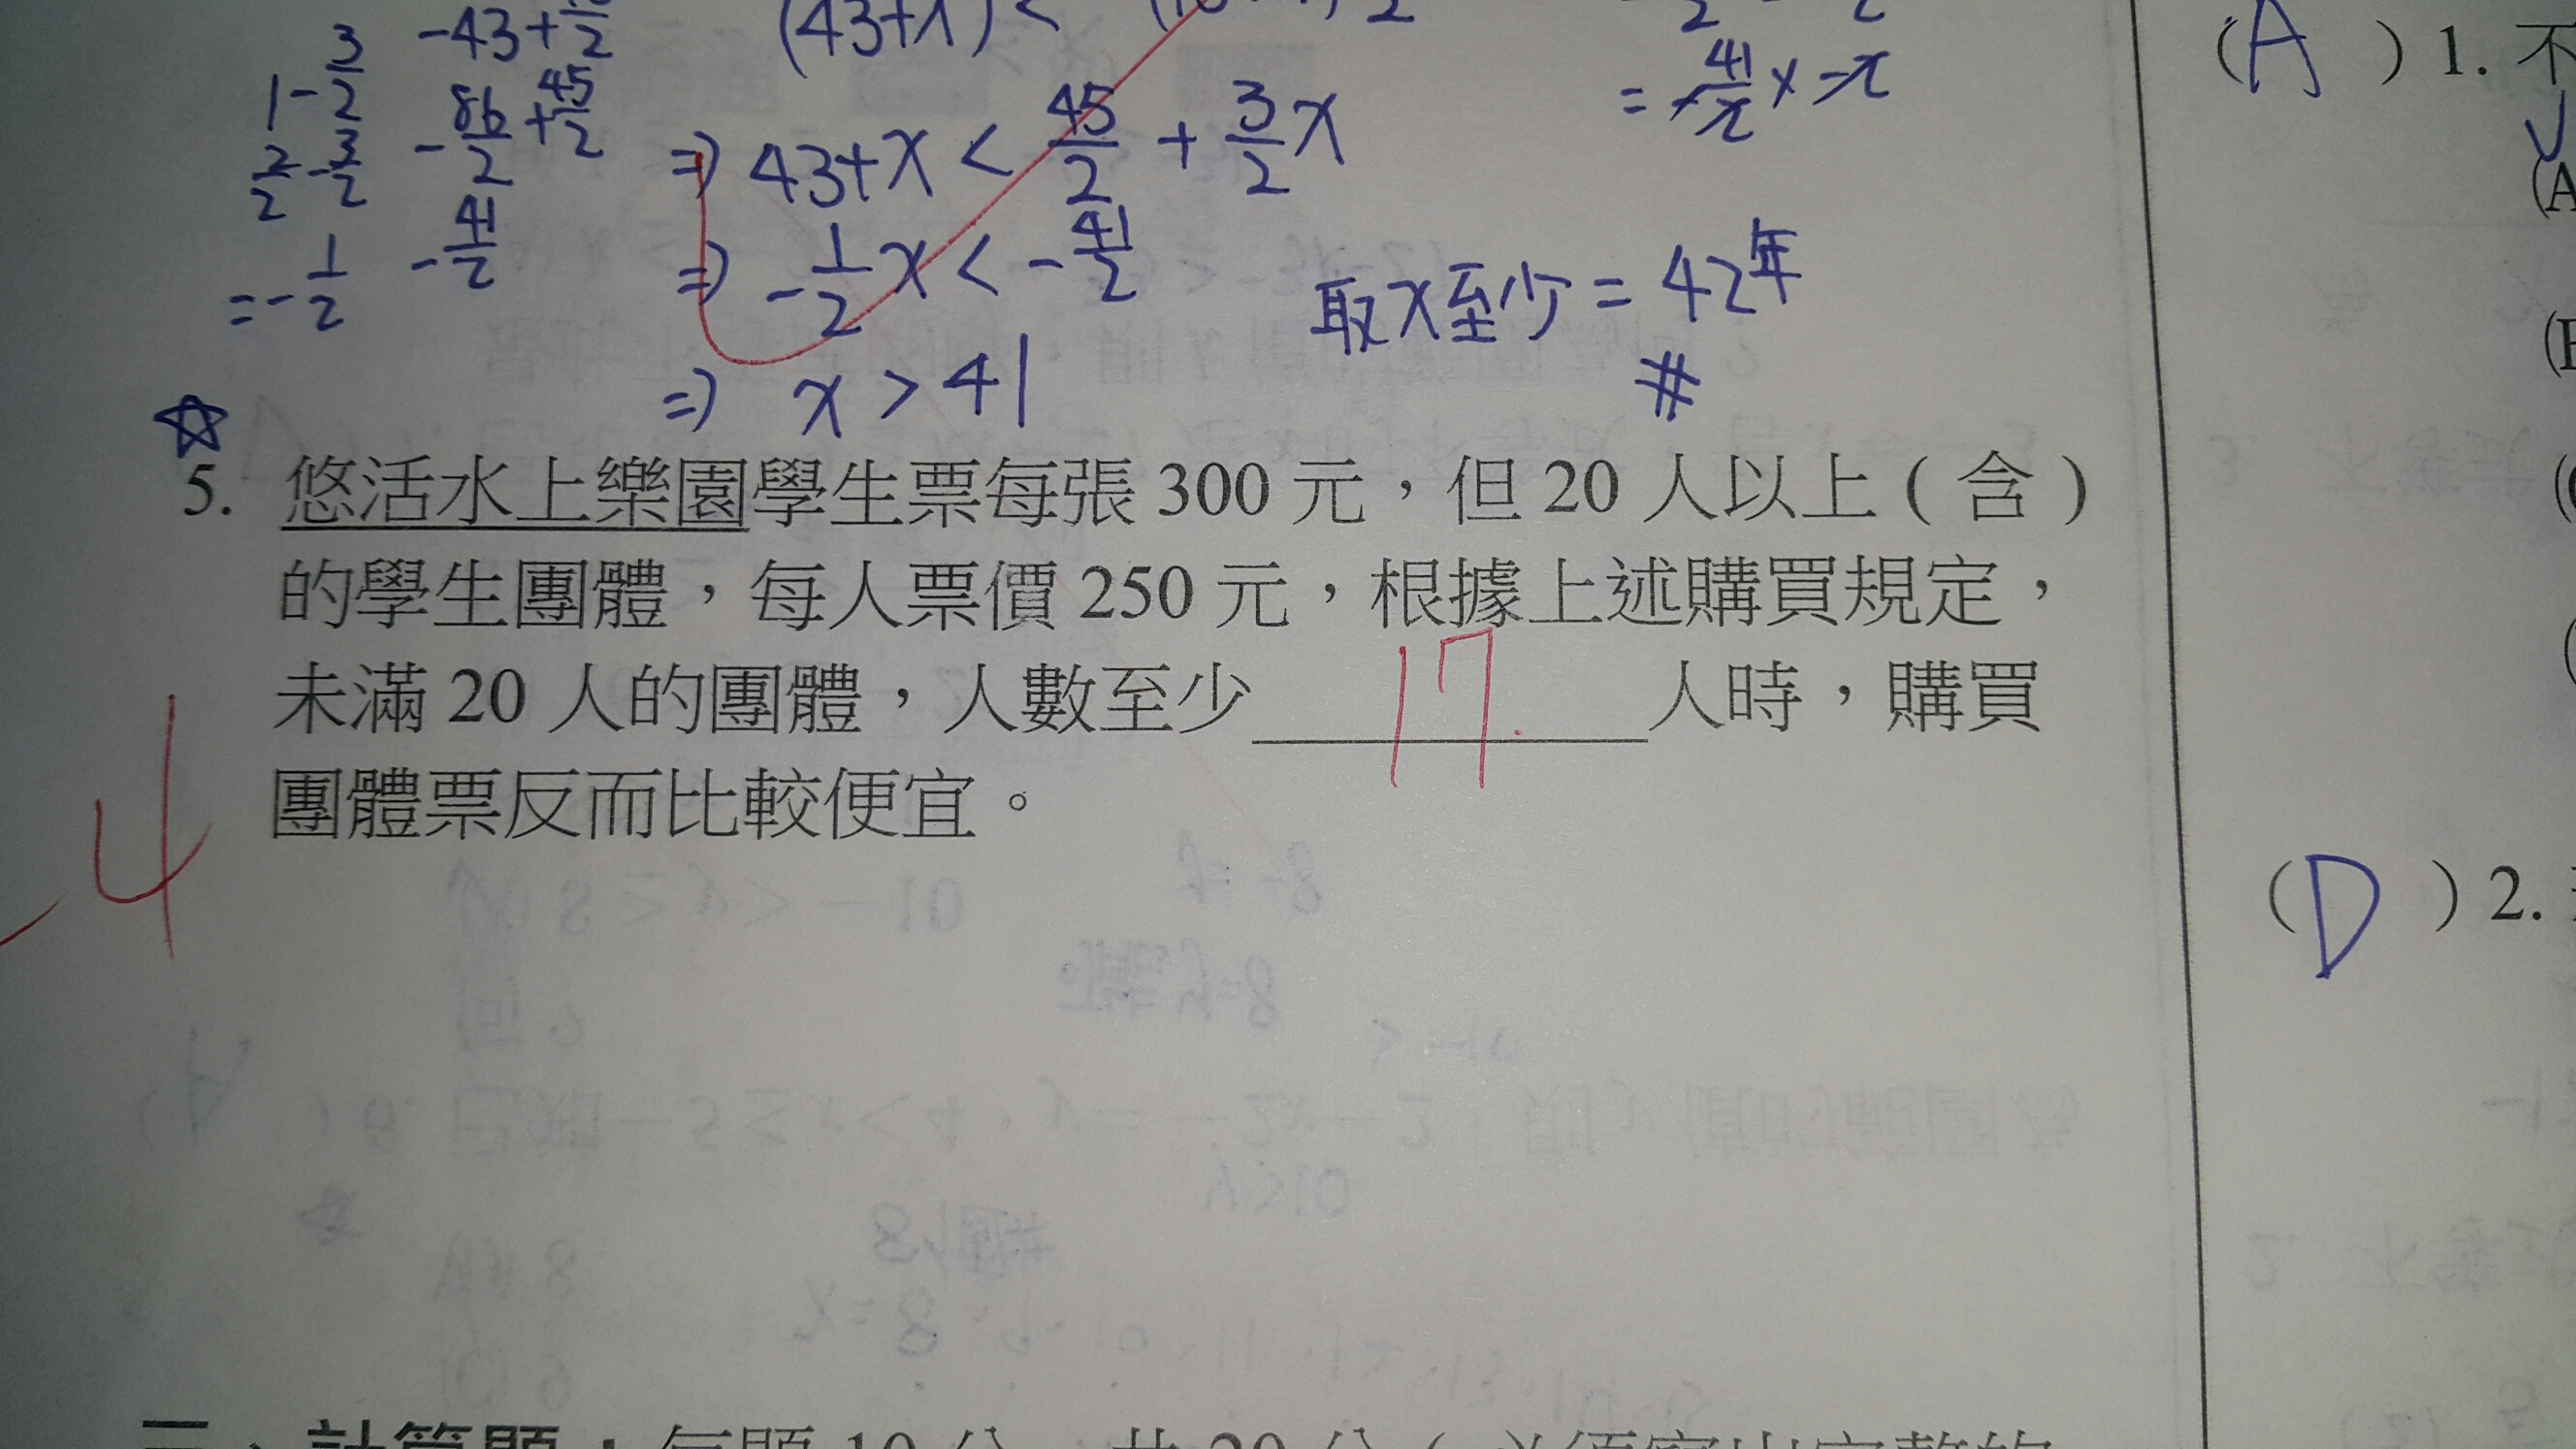 1 - 3/2
-43 +
2
(43+x) <
2
2/2 - 3/2
- 86/2 + 45/2
⇒ 43+x < 45/2 + 3/2 x
= - 1/2
- 41/2
⇒ - 1/2 x < - 41/2
取x至少 = 42年
#
⇒ x > 41
☆
5. 悠活水上樂園學生票每張 300 元，但 20 人以上（含）
的學生團體，每人票價 250 元，根據上述購買規定，
未滿 20 人的團體，人數至少 17 人時，購買
團體票反而比較便宜。
-4
三、計算題：每題 10 分，共 20 分（必須寫出完整的
(A) 1. 不
(A
(D) 2.